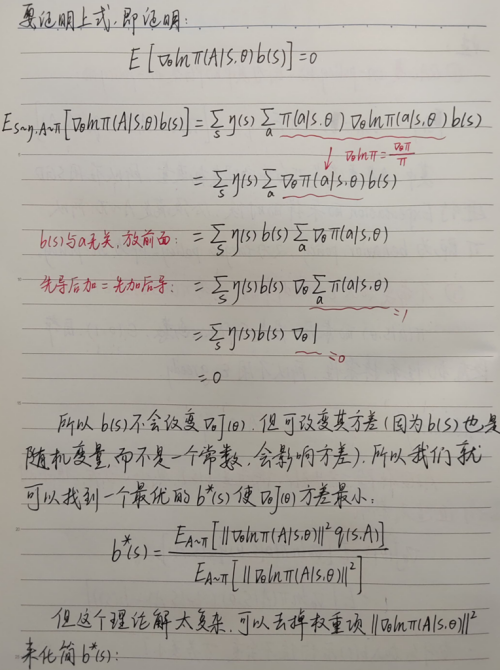 要证明上式,即证明:
E[∇θlnπ(A|S,θ)b(S)]=0
E_{S~η,A~π}[∇θlnπ(A|S,θ)b(S)] = Σ_s η(s) Σ_a π(a|s,θ) ∇θlnπ(a|s,θ) b(s)
↓ ∇θlnπ = ∇θπ/π
= Σ_s η(s) Σ_a ∇θπ(a|s,θ) b(s)
b(s)与a无关,放前面: = Σ_s η(s) b(s) Σ_a ∇θπ(a|s,θ)
先导后加=先加后导: = Σ_s η(s) b(s) ∇θ Σ_a π(a|s,θ)
=1
= Σ_s η(s) b(s) ∇θ 1
=0
= 0
所以 b(s)不会改变∇θJ(θ),但可改变其方差(因为b(S)也是
随机变量,而不是一个常数,会影响方差).所以我们就
可以找到一个最优的b*(s)使∇θJ(θ)方差最小:
b*(s) = E_{A~π}[||∇θlnπ(A|s,θ)||² q(s,A)] / E_{A~π}[||∇θlnπ(A|s,θ)||²]
但这个理论解太复杂,可以去掉权重项||∇θlnπ(A|s,θ)||²
来化简b*(s):